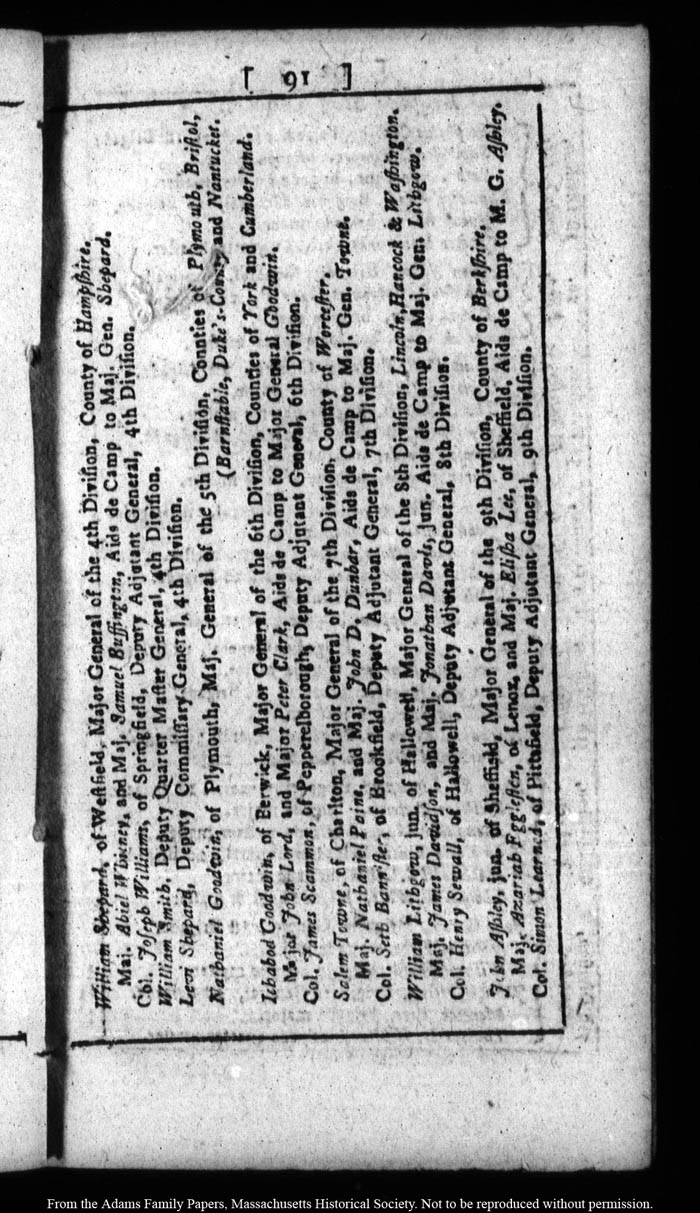 [ 91 ]
William Shepard, of Westfield, Major General of the 4th Division, County of Hampſhire.
Maj. Abiel Whitney, and Maj. Samuel Buffington, Aids de Camp to Maj. Gen. Shepard.
Col. Joſeph Williams, of Springfield, Deputy Adjutant General, 4th Diviſion.
William Smith, Deputy Quarter Maſter General, 4th Diviſion.
Levi Shepard, Deputy Commiſſary General, 4th Diviſion.
Nathaniel Goodwin, of Plymouth, Maj. General of the 5th Diviſion, Counties of Plymouth, Briſtol,
(Barnſtable, Duke's-County and Nantucket.
Ichabod Goodwin, of Berwick, Major General of the 6th Diviſion, Counties of York and Cumberland.
Major John Lord, and Major Peter Clark, Aids de Camp to Major General Goodwin.
Col. James Scammon, of Pepperelborough, Deputy Adjutant General, 6th Diviſion.
Salem Towne, of Charlton, Major General of the 7th Diviſion, County of Worceſter.
Maj. Nathaniel Paine, and Maj. John D. Dunbar, Aids de Camp to Maj. Gen. Towne.
Col. Seth Banniſter, of Brookfield, Deputy Adjutant General, 7th Diviſion.
William Lithgow, jun. of Hallowell, Major General of the 8th Diviſion, Lincoln, Hancock & Waſhington.
Maj. James Davidſon, and Maj. Jonathan Davis, jun. Aids de Camp to Maj. Gen. Lithgow.
Col. Henry Sewall, of Hallowell, Deputy Adjutant General, 8th Diviſion.
John Aſhley, jun. of Sheffield, Major General of the 9th Diviſion, County of Berkſhire.
Maj. Azariah Eggleſton, of Lenox, and Maj. Eliſha Lee, of Sheffield, Aids de Camp to M. G. Aſhley.
Col. Simon Learned, of Pittsfield, Deputy Adjutant General, 9th Diviſion.
From the Adams Family Papers, Massachusetts Historical Society. Not to be reproduced without permission.